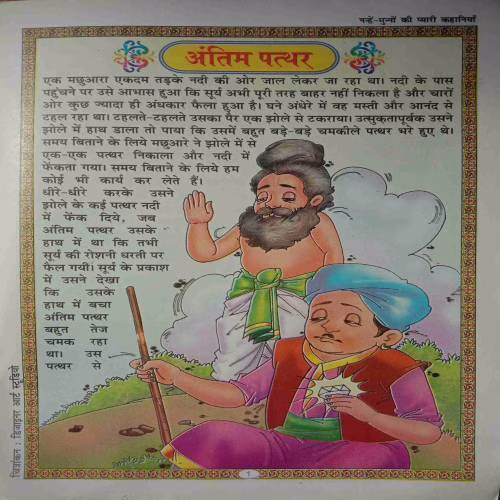 नन्हें-मुन्नों की प्यारी कहानियाँ
अंतिम पत्थर
एक मछुआरा एकदम तड़के नदी की ओर जाल लेकर जा रहा था। नदी के पास
पहुंचने पर उसे आभास हुआ कि सूर्य अभी पूरी तरह बाहर नहीं निकला है और चारों
ओर कुछ ज्यादा ही अंधकार फैला हुआ है। घने अंधेरे में वह मस्ती और आनंद से
टहल रहा था। टहलते-टहलते उसका पैर एक झोले से टकराया। उत्सुकतापूर्वक उसने
झोले में हाथ डाला तो पाया कि उसमें बहुत बड़े-बड़े चमकीले पत्थर भरे हुए थे।
समय बिताने के लिये मछुआरे ने झोले में से
एक-एक पत्थर निकाला और नदी में
फेंकता गया। समय बिताने के लिये हम
कोई भी कार्य कर लेते हैं।
धीरे-धीरे करके उसने
झोले के कई पत्थर नदी
में फेंक दिये, जब
अंतिम पत्थर उसके
हाथ में था कि तभी
सूर्य की रोशनी धरती पर
फैल गयी। सूर्य के प्रकाश
में उसने देखा
कि उसके
हाथ में बचा
अंतिम पत्थर
बहुत तेज
चमक रहा
था। उस
पत्थर से
चित्रांकन : डिजाइनर आर्ट स्टूडियो
1